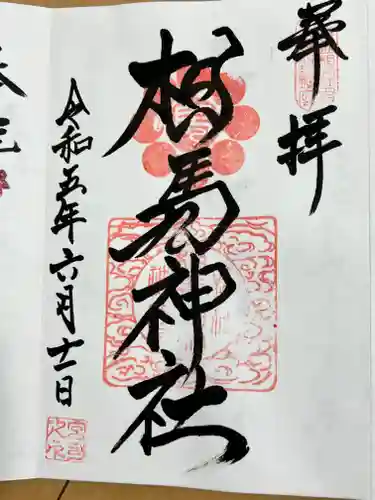 奉拝
相馬神社
令和五年六月十一日